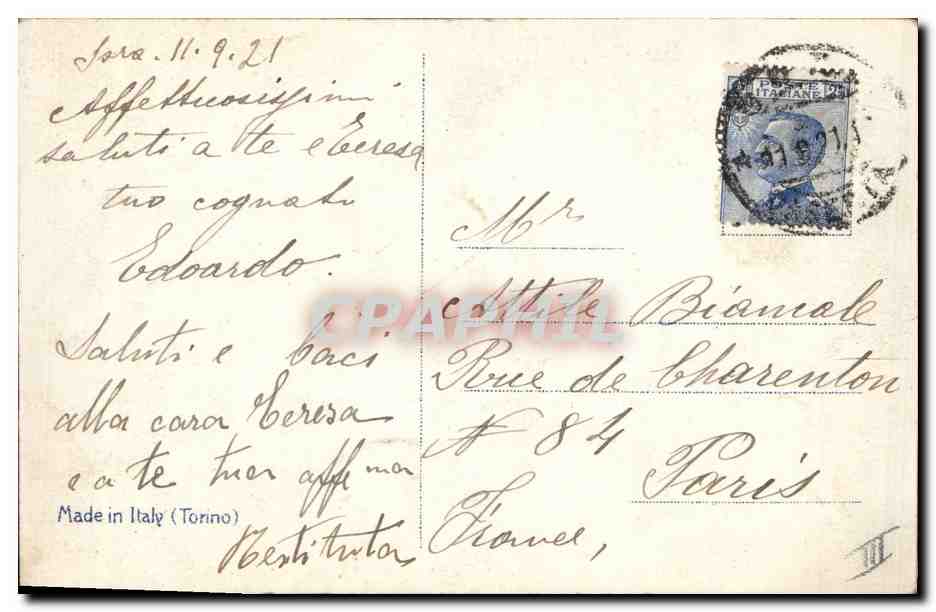 11.9.21
Affettuosissimi
saluti a te e Teresa
tuo cognato
Edoardo.
Saluti e baci
alla cara Teresa
e a te tua affma
Restituta
Made in Italy (Torino)
POSTE
ITALIANE 25
11.9.21
Mr
Attile Biamale
Rue de Charenton
N 84
Paris
France,
III
CPAPHIL